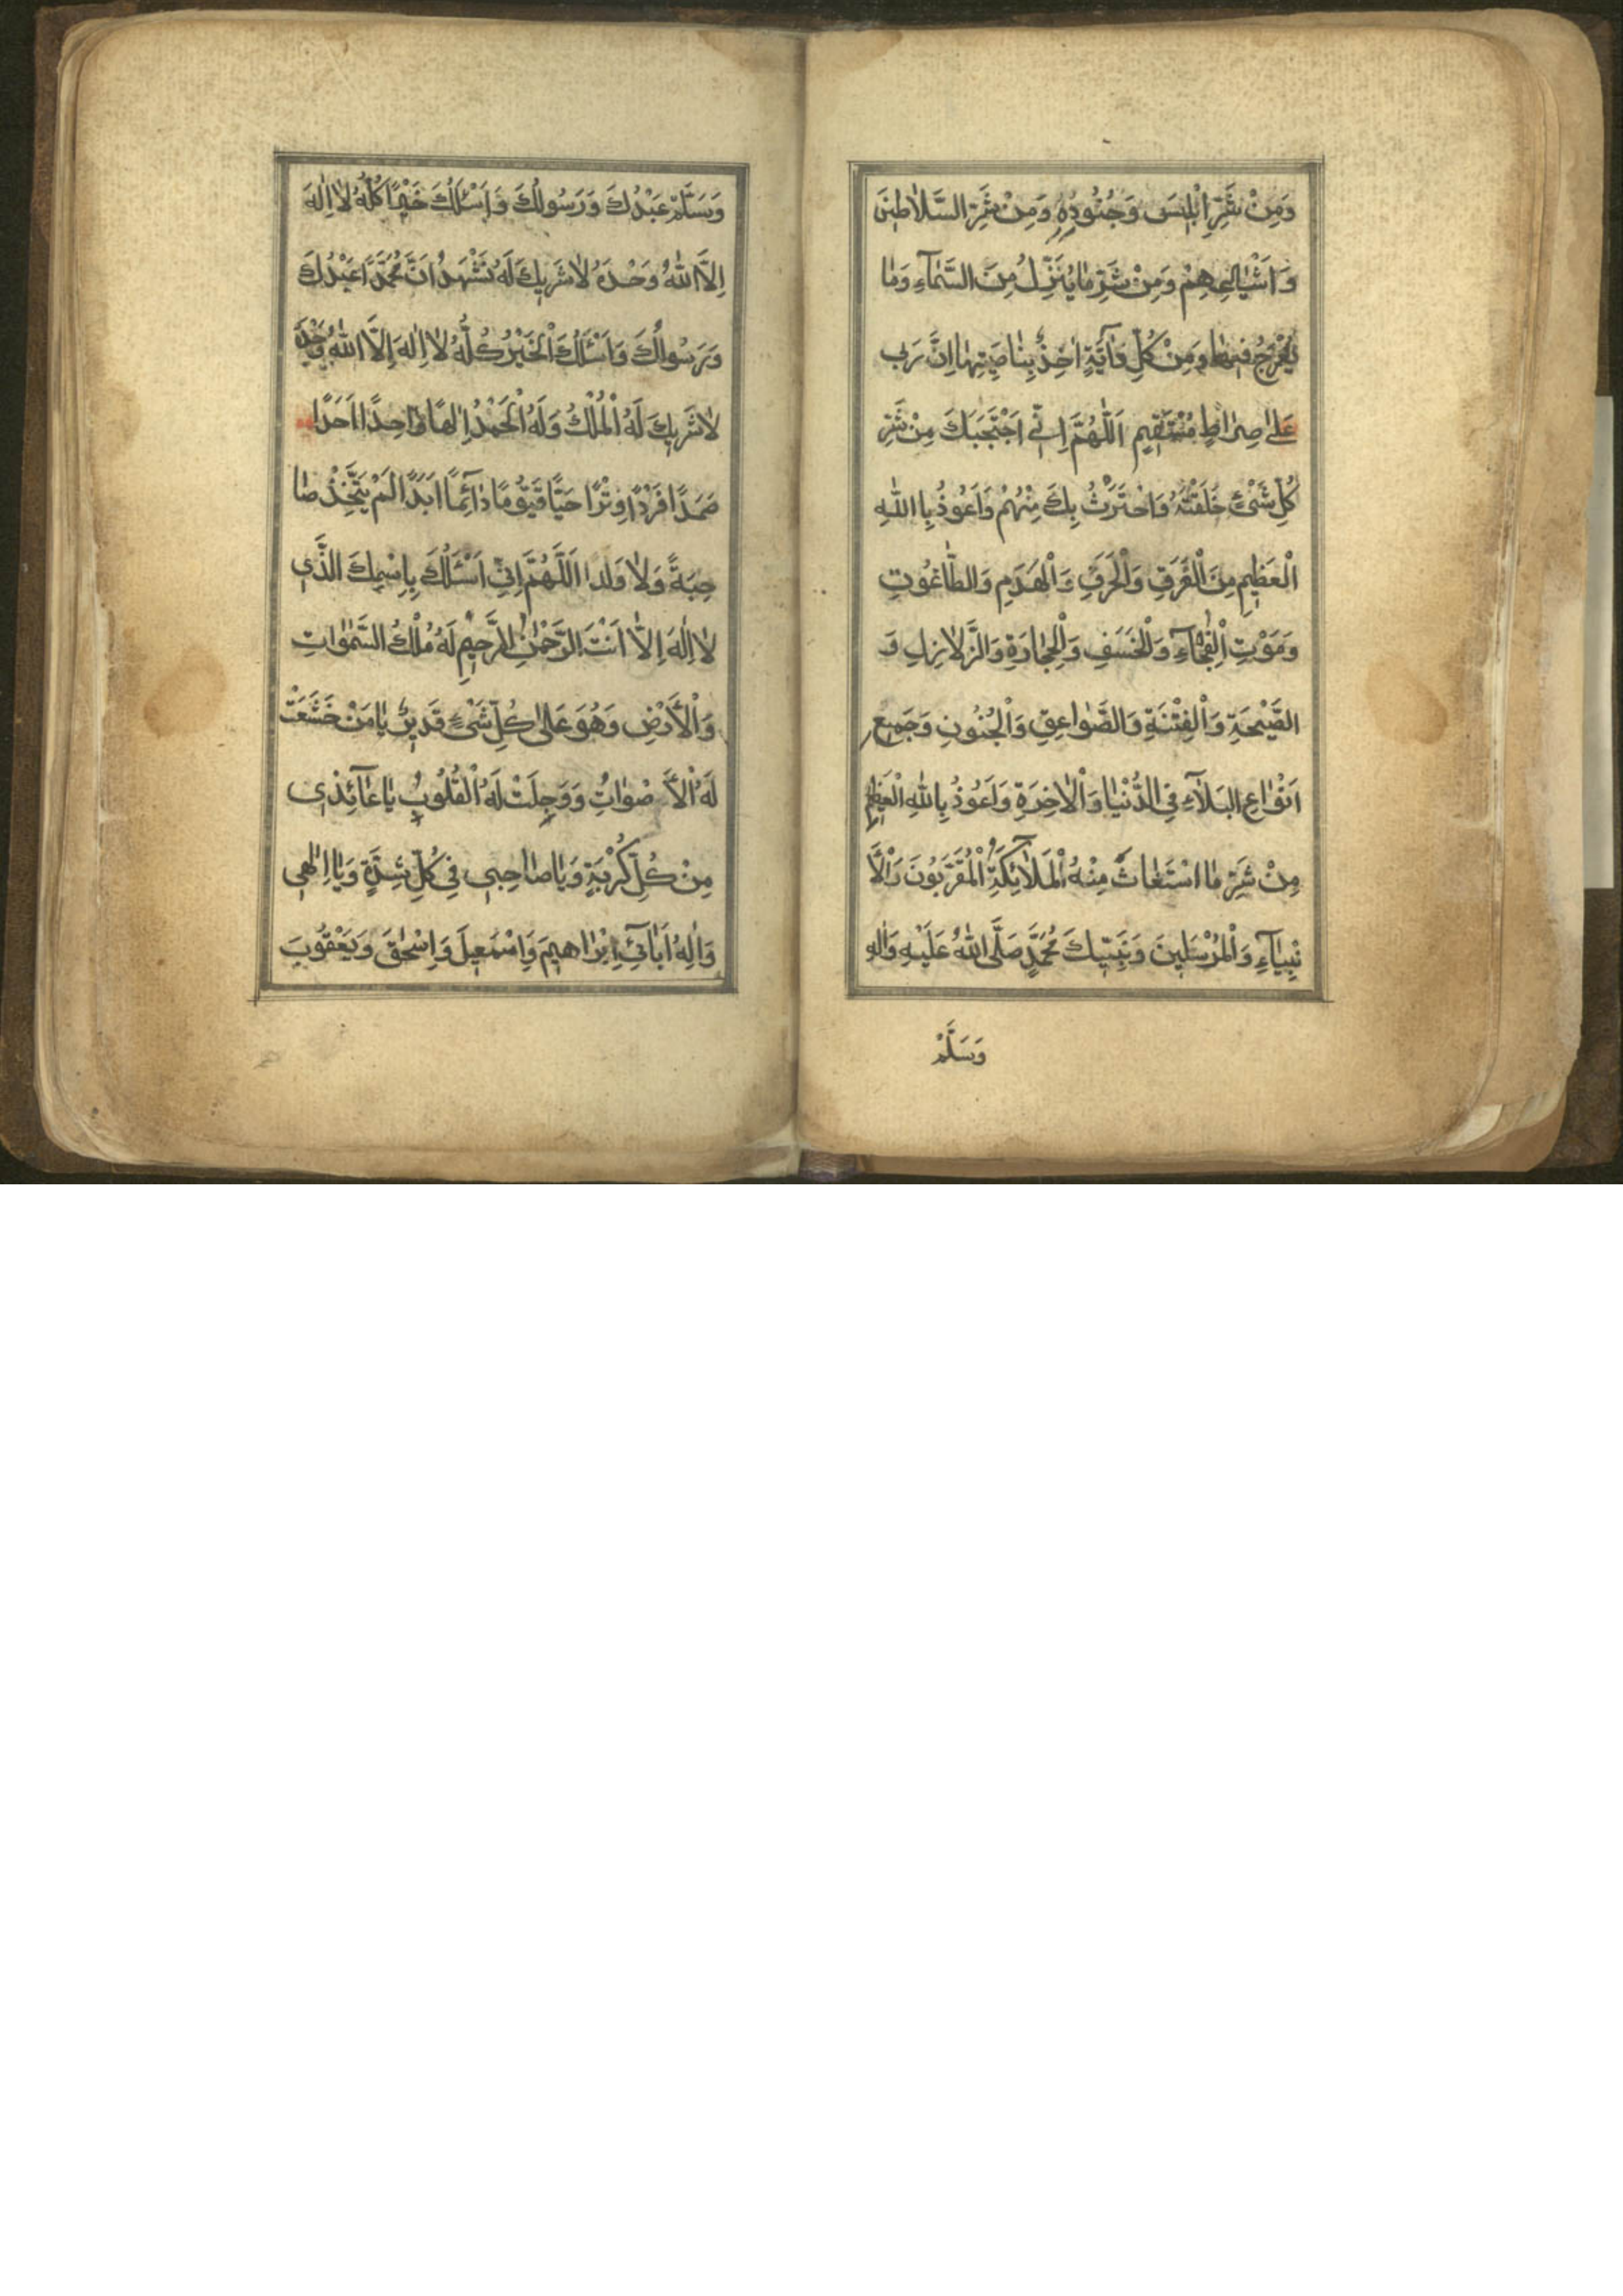 وَمِنْ شَرِّ اِبْلِيسَ وَجُنُودِهِ وَمِنْ شَرِّ السَّلَاطِينَ
وَاَشْيَاعِهِمْ وَمِنْ شَرِّ مَا يُنَزِّلُ مِنَ السَّمَآءِ وَمَا
يَعْرُجُ فِيهَا وَمِنْ كُلِّ دَآبَّةٍ اٰخِذٌ بِنَاصِيَتِهَا اِنَّ رَبّى
عَلىٰ صِرَاطٍ مُسْتَقِيمٍ اَللّٰهُمَّ اِنّى اَحْتَجِبُكَ مِنْ شَرِّ
كُلِّ شَىْءٍ خَلَقْتَهُ وَاحْتَرَزْتُ بِكَ مِنْهُمْ وَاَعُوذُ بِاللّٰهِ
الْعَظِيمِ مِنَ الْغَرَقِ وَالْحَرَقِ وَالْهَدَمِ وَالطَّاغُوتِ
وَمَوْتِ الْفُجَاۤءِ وَالْخَسَفِ وَالْحِجَارَةِ وَالزَّلَازِلِ وَ
الصَّيْحَةِ وَالْفِتْنَةِ وَالصَّوَاعِقِ وَالْجُنُونِ وَجَمِيعِ
اَنْوَاعِ الْبَلَآءِ فِى الدُّنْيَا وَالْاٰخِرَةِ وَاَعُوذُ بِاللّٰهِ الْعَظِيمِ
مِنْ شَرِّ مَا اسْتَعَاذَ مِنْهُ الْمَلَآئِكَةُ الْمُقَرَّبُونَ وَالْاَ
نْبِيَآءِ وَالْمُرْسَلِينَ وَنَبِيِّكَ مُحَمَّدٍ صَلَّى اللّٰهُ عَلَيْهِ وَاٰلِهِ
وَسَلَّمْ
وَسَلَّمْ عَبْدُكَ وَرَسُولُكَ وَاَسْئَلُكَ خَيْرًا كُلَّهُ لَا اِلٰهَ
اِلَّا اللّٰهُ وَحْدَهُ لَا شَرِيكَ لَهُ نَشْهَدُ اَنَّ مُحَمَّدًا عَبْدُكَ
وَرَسُولُكَ وَاَسْئَلُكَ الْخَيْرُ كُلَّهُ لَا اِلٰهَ اِلَّا اللّٰهُ وَحْدَهُ
لَا شَرِيكَ لَهُ الْمُلْكُ وَلَهُ الْحَمْدُ اِلٰهًا وَاحِدًا اَحَدًا
صَمَدًا فَرْدًا وِتْرًا حَيًّا قَيُّومًا دَآئِمًا اَبَدًا لَمْ يَتَّخِذْ صَا
حِبَةً وَلَا وَلَدًا اَللّٰهُمَّ اِنّى اَسْئَلُكَ بِاسْمِكَ الَّذى
لَا اِلٰهَ اِلَّا اَنْتَ الرَّحْمٰنِ الرَّحِيمِ لَهُ مُلْكُ السَّمٰوَاتِ
وَالْاَرْضِ وَهُوَ عَلىٰ كُلِّ شَىْءٍ قَدِيرٌ يَا مَنْ خَشَعَتْ
لَهُ الْاَصْوَاتُ وَوَجِلَتْ لَهُ الْقُلُوبُ يَا عَآئِذى
مِنْ كُلِّ كُرْبَةٍ وَيَا صَاحِبى فى كُلِّ شِدَّةٍ وَيَا اِلٰهى
وَاِلٰهَ اٰبَآئى اِبْرَاهِيمَ وَاِسْمٰعِيلَ وَاِسْحٰقَ وَيَعْقُوبَ